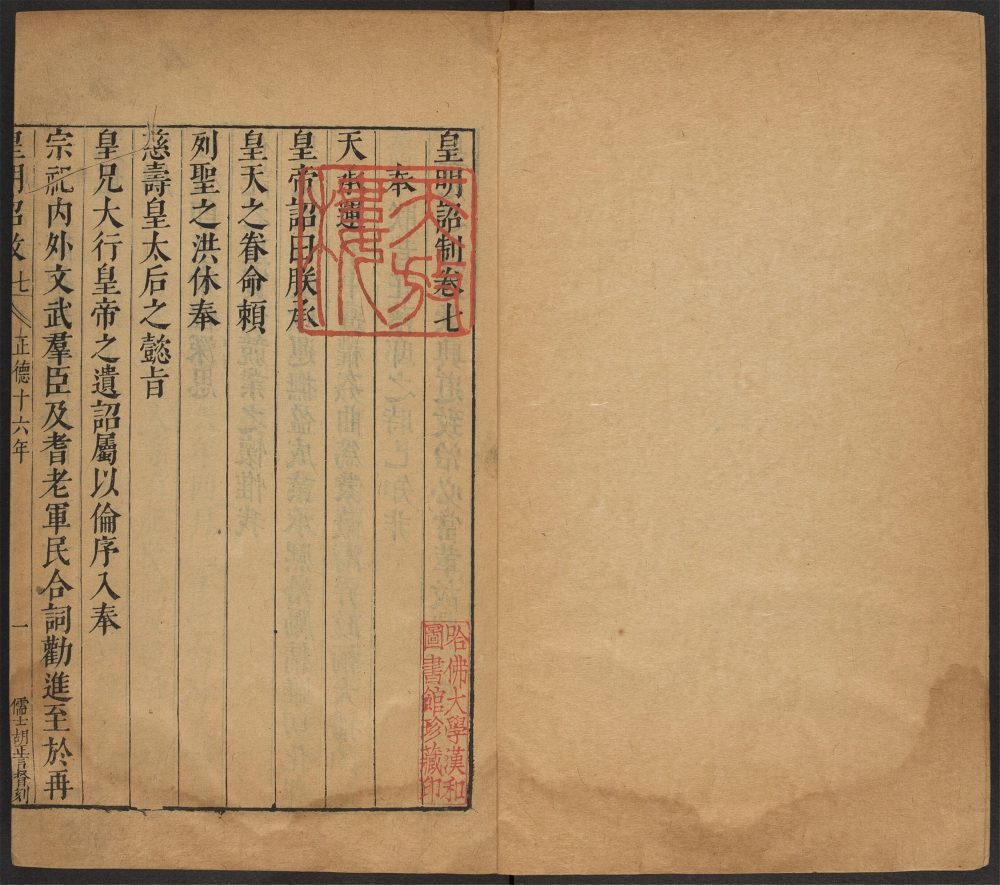 皇明詔制卷七
奉
天承運
皇帝詔曰朕承
皇天之眷命賴
列聖之洪休奉
慈壽皇太后之懿旨
皇兄大行皇帝之遺詔屬以倫序入奉
宗祀內外文武羣臣及耆老軍民合詞勸進至於再
皇明詔制 七 正德十六年 一 儒士胡正言督刻
哈佛大學漢和
圖書館珍藏印